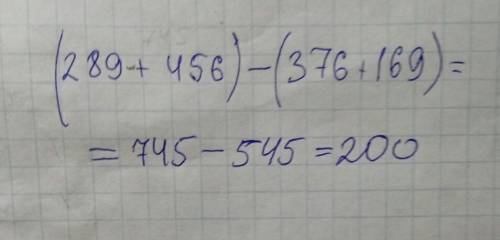 (289+ 456)-(376+169)=
=745-545=200